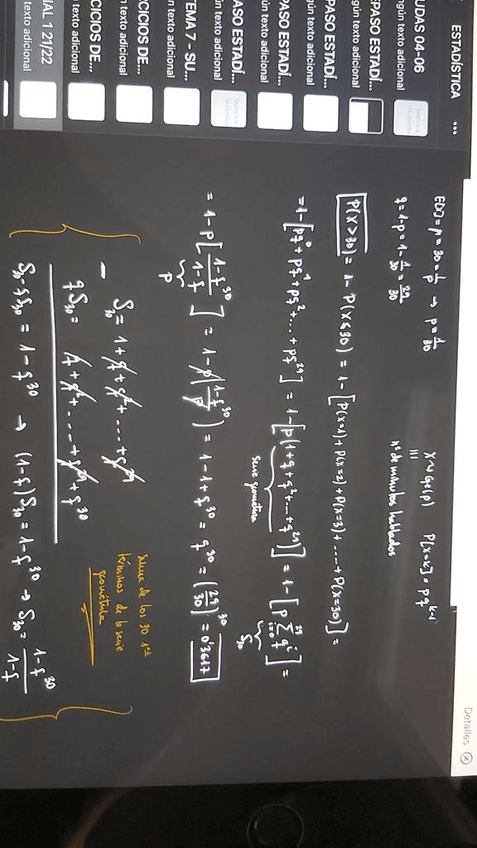 ESTADÍSTICA
...
UDAS 04-06
ngún texto adicional
EPASO ESTADÍ...
gún texto adicional
PASO ESTADÍ...
ún texto adicional
PASO ESTADÍ...
ún texto adicional
ASO ESTADÍ...
ún texto adicional
TEMA 7 - SU...
n texto adicional
CICIOS DE...
n texto adicional
CICIOS DE...
texto adicional
IAL 1 21/22
texto adicional
Detalles
E[X]=μ=30=1/p → p=1/30
X~Ge(p) P[X=k]=pq^(k-1)
q=1-p=1-1/30=29/30
nº de minutos hablados
P(X>30) = 1- P(X≤30) = 1-[P(X=1)+P(X=2)+P(X=3)+....+P(X=30)]=
=1-[pq^0+pq^1+pq^2+...+pq^29] = 1-[p(1+q+q^2+...+q^29)] = 1-[p Σ_(i=0)^29 q^i]=
serie geométrica
S_30
=1-p[(1-q^30)/(1-q)] = 1-p((1-q^30)/p) = 1-1+q^30 = q^30 = (29/30)^30 = 0'3617
p
- S_30 = 1+q+q^2+...+q^29
qS_30 = q+q^2+...+q^29+q^30
suma de los 30 1os
términos de la serie
geométrica
S_30-qS_30 = 1-q^30 → (1-q)S_30=1-q^30 → S_30=(1-q^30)/(1-q)